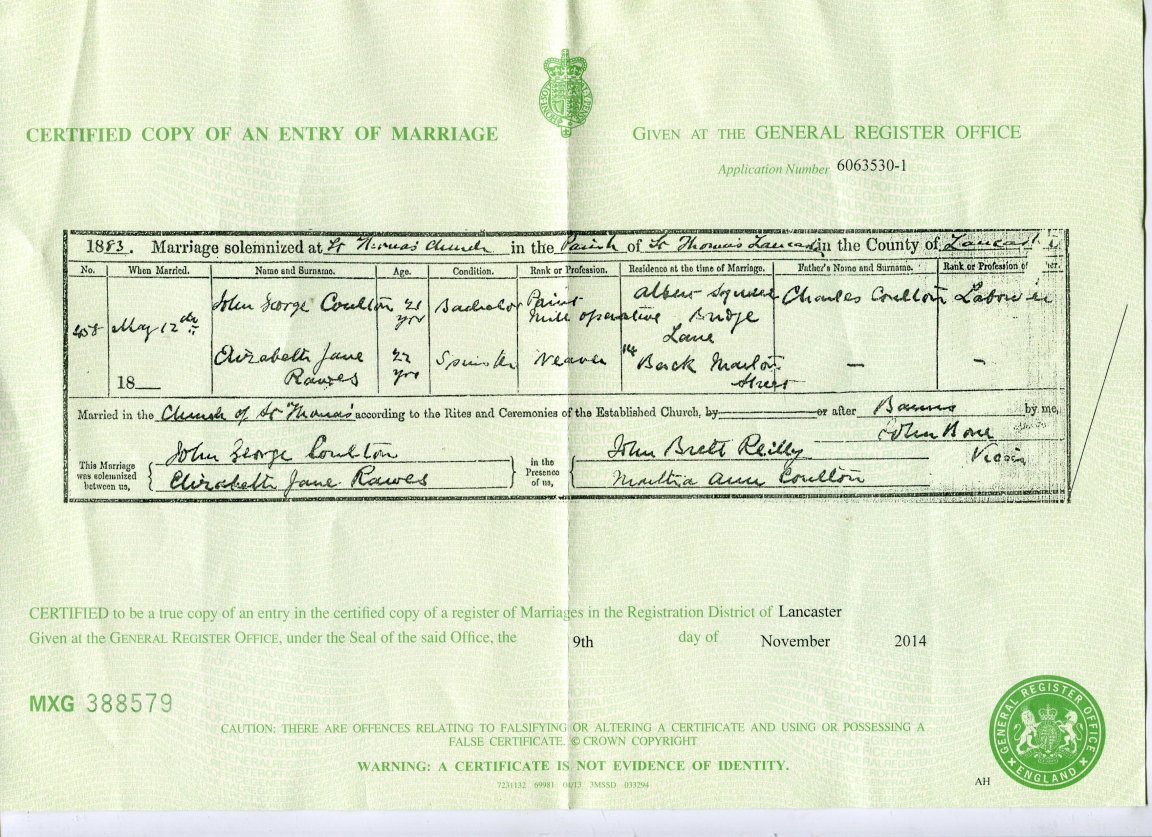 CERTIFIED COPY OF AN ENTRY OF MARRIAGE
GIVEN AT THE GENERAL REGISTER OFFICE
Application Number 6063530-1
1883. Marriage solemnized at St Thomas' Church in the Parish of St Thomas Lancaster in the County of Lancaster
No. When Married. Name and Surname. Age. Condition. Rank or Profession. Residence at the time of Marriage. Father's Name and Surname. Rank or Profession of
408 May 12th John George Coulton 21 yrs Bachelor Paint Mill operative Albert Square Bridge Lane Charles Coulton Labourer
18 Elizabeth Jane Rawes 22 yrs Spinster Weaver Back Street — —
Married in the Church of St Thomas according to the Rites and Ceremonies of the Established Church, by or after Banns by me,
John Bone
Vicar
This Marriage was solemnized between us, John George Coulton
Elizabeth Jane Rawes
in the Presence of us, John Brett Reilly
Martha Ann Coulton
CERTIFIED to be a true copy of an entry in the certified copy of a register of Marriages in the Registration District of Lancaster
Given at the GENERAL REGISTER OFFICE, under the Seal of the said Office, the 9th day of November 2014
MXG 388579
CAUTION: THERE ARE OFFENCES RELATING TO FALSIFYING OR ALTERING A CERTIFICATE AND USING OR POSSESSING A
FALSE CERTIFICATE. © CROWN COPYRIGHT
WARNING: A CERTIFICATE IS NOT EVIDENCE OF IDENTITY.
7231132 69981 04/13 3MSSD 033294
AH
GENERAL REGISTER OFFICE
ENGLAND